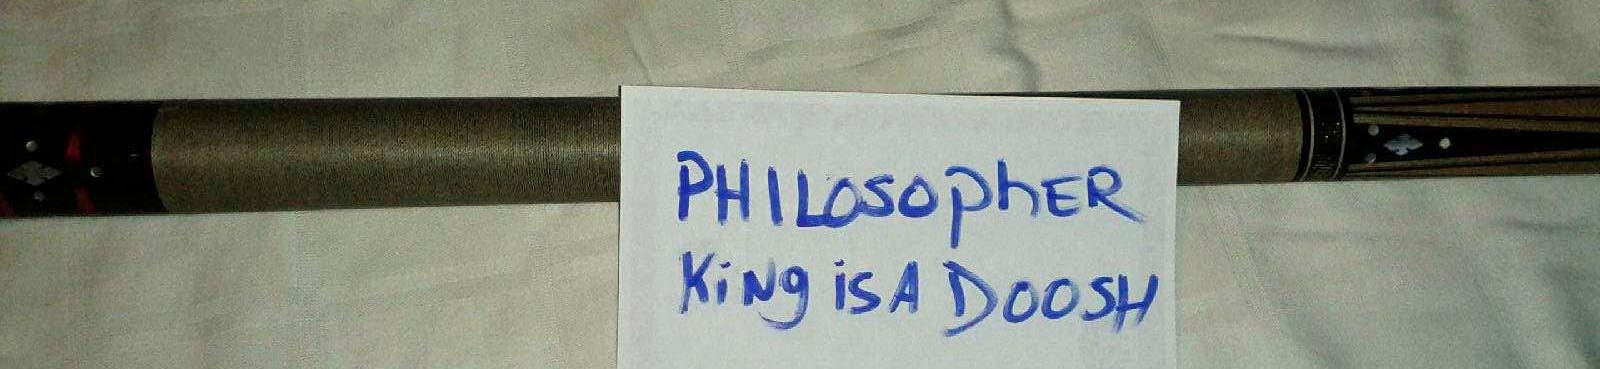 PHILOSOphER
KiNg iS A DOOSH